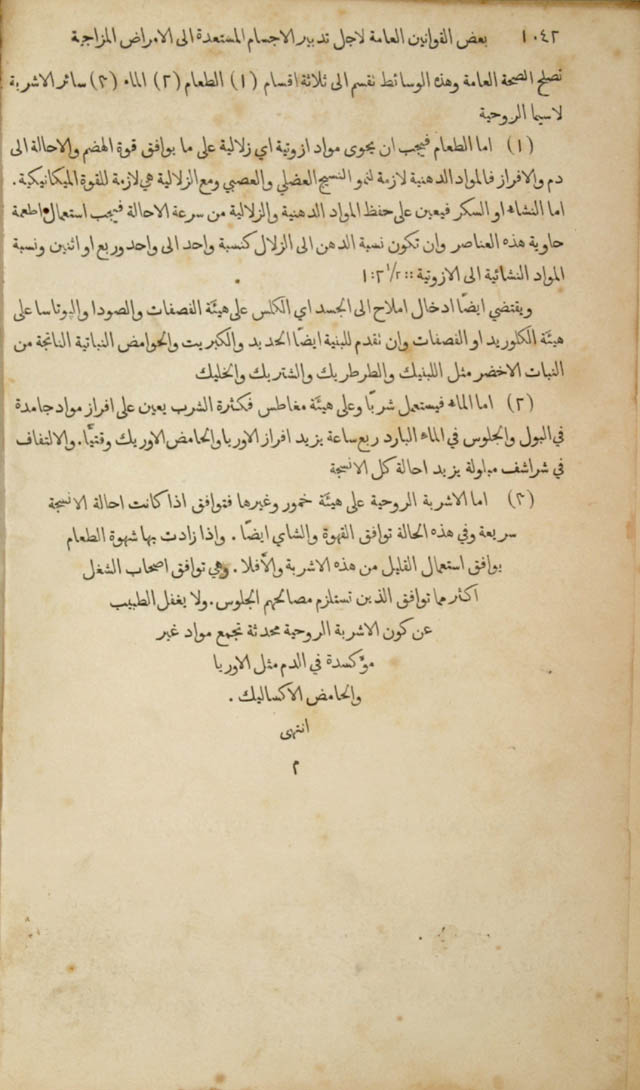 ١٠٤٢ بعض القوانين العامة لاجل تدبير الاجسام المستعدة الى الامراض المزاجية
تصلح الصحة العامة وهذه الوسائط نقسم الى ثلاثة اقسام (١) الطعام (٢) الماء (٣) سائر الاشربة
لاسيما الروحية
(١) اما الطعام فيجب ان يحوى مواد ازوتية اي زلالية على ما يوافق قوة الهضم والاحالة الى
دم والافراز فالمواد الدهنية لازمة لنمو النسيج العضلي والعصبي ومع الزلالية هي لازمة للقوة الميكانيكية.
اما النشاء او السكر فيعين على حفظ المواد الدهنية والزلالية من سرعة الاحالة فيجب استعمال اطعمة
حاوية هذه العناصر وان تكون نسبة الدهن الى الزلال كنسبة واحد الى واحد وربع او اثنين ونسبة
المواد النشائية الى الازوتية :: ٢½ : ١
ويقتضي ايضًا ادخال املاح الى الجسد اي الكلس على هيئة الفصفات والصودا والپوتاسا على
هيئة الكلوريد او الفصفات وان نقدم للبنية ايضًا الحديد والكبريت والحوامض النباتية الناتجة من
النبات الاخضر مثل اللبنيك والطرطريك والشتريك والخليك
(٢) اما الماء فيستعمل شربًا وعلى هيئة مغاطس فكثرة الشرب يعين على افراز مواد جامدة
في البول والجلوس في الماء البارد ربع ساعة يزيد افراز الاوريا والحامض الاوريك وقتيًّا. والالتفاف
في شراشف مبلولة يزيد احالة كل الانسجة
(٣) اما الاشربة الروحية على هيئة خمور وغيرها فتوافق اذا كانت احالة الانسجة
سريعة وفي هذه الحالة توافق القهوة والشاي ايضًا. واذا زادت بها شهوة الطعام
يوافق استعمال القليل من هذه الاشربة والاّ فلا. وهي توافق اصحاب الشغل
اكثر مما توافق الذين تستلزم مصالحهم الجلوس. ولا يغفل الطبيب
عن كون الاشربة الروحية محدثة تجمع مواد غير
موكسدة في الدم مثل الاوريا
والحامض الاكساليك.
انتهى
م